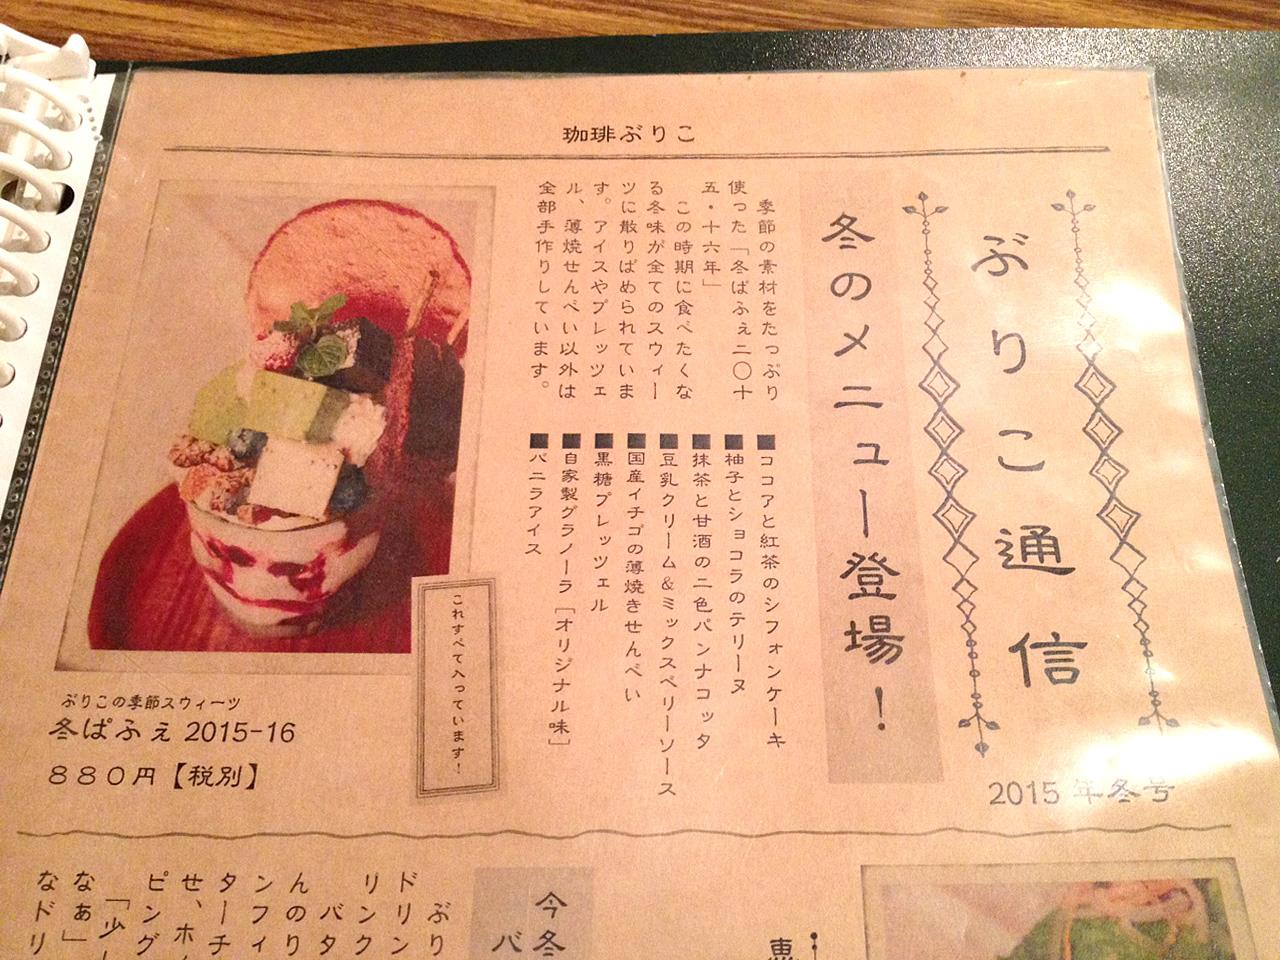 珈琲ぶりこ
ぶりこ通信
2015年冬号
冬のメニュー登場！
季節の素材をたっぷり
使った「冬ぱふぇ二〇十
五・十六年」
この時期に食べたくな
る冬味が全てのスウィー
ツに散りばめられていま
す。アイスやプレッツェ
ル、薄焼せんべい以外は
全部手作りしています。
■ココアと紅茶のシフォンケーキ
■柚子とショコラのテリーヌ
■抹茶と甘酒の二色パンナコッタ
■豆乳クリーム＆ミックスベリーソース
■国産イチゴの薄焼きせんべい
■黒糖プレッツェル
■自家製グラノーラ［オリジナル味］
■バニラアイス
これすべて入っています！
ぶりこの季節スウィーツ
冬ぱふぇ 2015-16
８８０円【税別】
恵
今冬
バ
ぶり
ドリン
リンク
バタ
んのり
ンフィ
ターチ
せ、ホ
ピング
「少し
なぁ」
なドリ